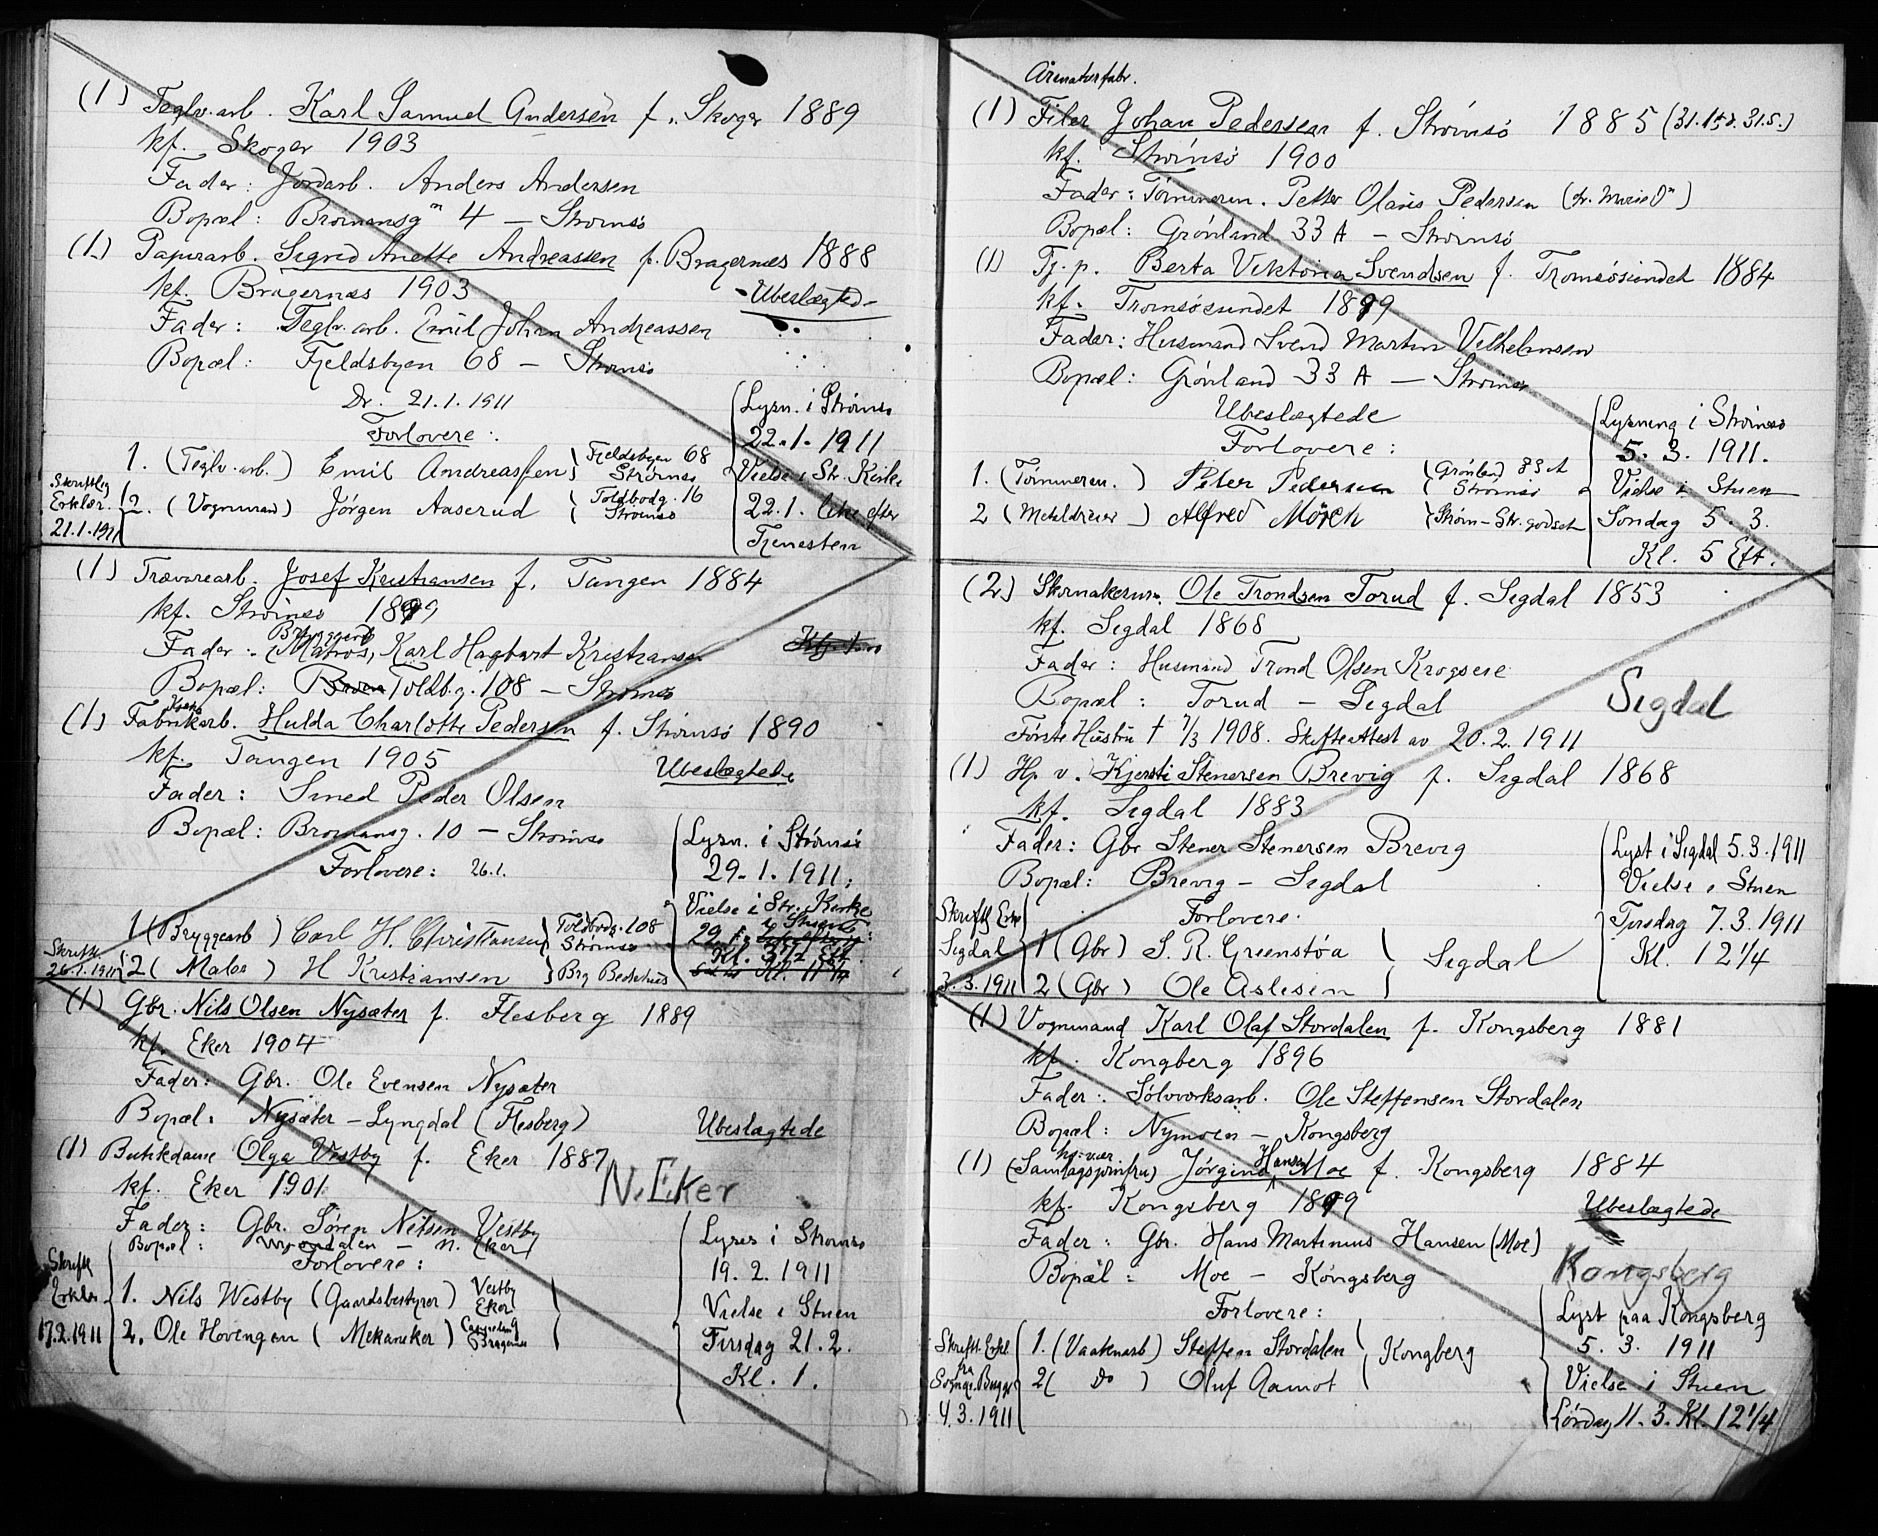 (1) Teglv.arb. Karl Samuel Andersen f. Skoger 1889
kf. Skoger 1903
Fader: Jordarb. Anders Andersen
Bopæl: Bromansg. 4 – Strømsø
(1) Papirarb. Sigrid Anette Andreassen f. Bragernes 1888
kf. Bragernæs 1903
Ubeslægted
Fader: Teglv.arb. Emil Johan Andreassen
Bopæl: Fjeldsbyen 68 – Strømsø
Dr. 21.1.1911
Forlovere:
1. (Teglv.arb.) Emil Andreassen } Fjeldsbyen 68 Strømsø
2. (Vognmand) Jørgen Aaserud { Toldbodg. 16 Strømsø
Skriftlig
Erklær.
21.1.1911
Lysn. i Strømsø
22.1.1911
Vielse i Str. Kirke
22.1. like efter
Tjenesten
(1) Trævarearb. Josef Kristiansen f. Tangen 1884
kf. Strømsø 1899
Fader: (Matros) Bryggearb. Karl Hagbart Kristiansen
Bopæl: Toldb.g. 108 – Strømsø
(1) Fabrikarb. Hulda Charlotte Pedersen f. Strømsø 1890
kf. Tangen 1905
Ubeslægtede
Fader: Smed Peder Olsen
Bopæl: Bromansg. 10 – Strømsø
Forlovere: 26.1.
1 (Bryggearb) Carl H. Christiansen } Toldbodg. 108 Strømsø
2 (Maler) H Kristiansen } Brg Bedehus
Skriftl.
26.1.1911
Lysn. i Strømsø
29.1.1911.
Vielse i Str. Kirke
29
Kl. 3 1/2 Eft.
(1) Gbr. Nils Olsen Nysæter f. Flesberg 1889
kf. Eker 1904
Fader: Gbr. Ole Evensen Nysæter
Bopæl: Nysæter – Lyngdal (Flesberg)
Ubeslægtede
(1) Butikdame Olga Vestby f. Eker 1887
kf. Eker 1901
N. Eker
Fader: Gbr. Søren Nilsen Vestby
Bopæl: – N. Eker
Forlovere:
1. Nils Westby (Gaardsbestyrer) Vestby Eker
2. Ole Hovengen (Mekaniker) Bragernes
Skriftl
Erklær.
17.2.1911
Lyses i Strømsø
19.2.1911
Vielse i Stuen
Tirsdag 21.2.
Kl. 1.
(1) Filer Johan Pedersen f. Strømsø 1885
kf. Strømsø 1900
Fader: Tømmerm. Petter Olaus Pedersen
Bopæl: Grønland 33 A – Strømsø
(1) Tj.p. Berta Viktoria Svendsen f. Tromsøsundet 1884
kf. Tromsøsundet 1899
Fader: Husmand Svend Martin Vilhelmsen
Bopæl: Grønland 33 A – Strømsø
Ubeslægtede
Forlovere:
1. (Tømmerm.) Peter Pedersen { Grønland 33 A Strømsø
2 (Metaldreier) Alfred Mörck { Strøm – Str. godset
Lysning i Strømsø
5.3.1911.
Vielse i Stuen
Søndag 5.3.
Kl. 5 Eft.
(2) Skomakerm. Ole Trondsen Torud f. Sigdal 1853
kf. Sigdal 1868
Fader: Husmand Trond Olsen Krogseie
Bopæl: Torud – Sigdal
Sigdal
Første Hustru † 7/3 1908. Skifteattest av 20.2.1911
(1) Hp v. Kjersti Stenersen Brevig f. Sigdal 1868
kf. Sigdal 1883
Fader: Gbr Stener Stenersen Brevig
Bopæl: Brevig – Sigdal
Forlovere.
1 (Gbr) S. R. Greenstøa
2 (Gbr) Ole Aslesen
Sigdal
Skriftl. Erkl
Sigdal
3.3.1911
Lyst i Sigdal 5.3.1911
Vielse i Stuen
Tirsdag 7.3.1911
Kl. 12 1/4
(1) Vognmand Karl Olaf Stordalen f. Kongsberg 1881
kf. Kongberg 1896
Fader: Sølvverksarb. Ole Steffensen Stordalen
Bopæl: Nymoen – Kongsberg
(1) Jørgine Hansen Moe f. Kongsberg 1884
kf. Kongsberg 1899
Ubeslægtede
Fader: Gbr. Hans Martinius Hansen (Moe)
Bopæl: Moe – Kongsberg
Kongsberg
Forlovere:
1. (Vaabenarb) Steffen Stordalen
2 ( Do ) Oluf Aamot
Kongberg
Skriftl. Erkl
fra
Sogne. Bugge
4.3.1911
Lyst paa Kongsberg
5.3.1911
Vielse i Stuen
Lørdag 11.3. Kl. 12 1/4